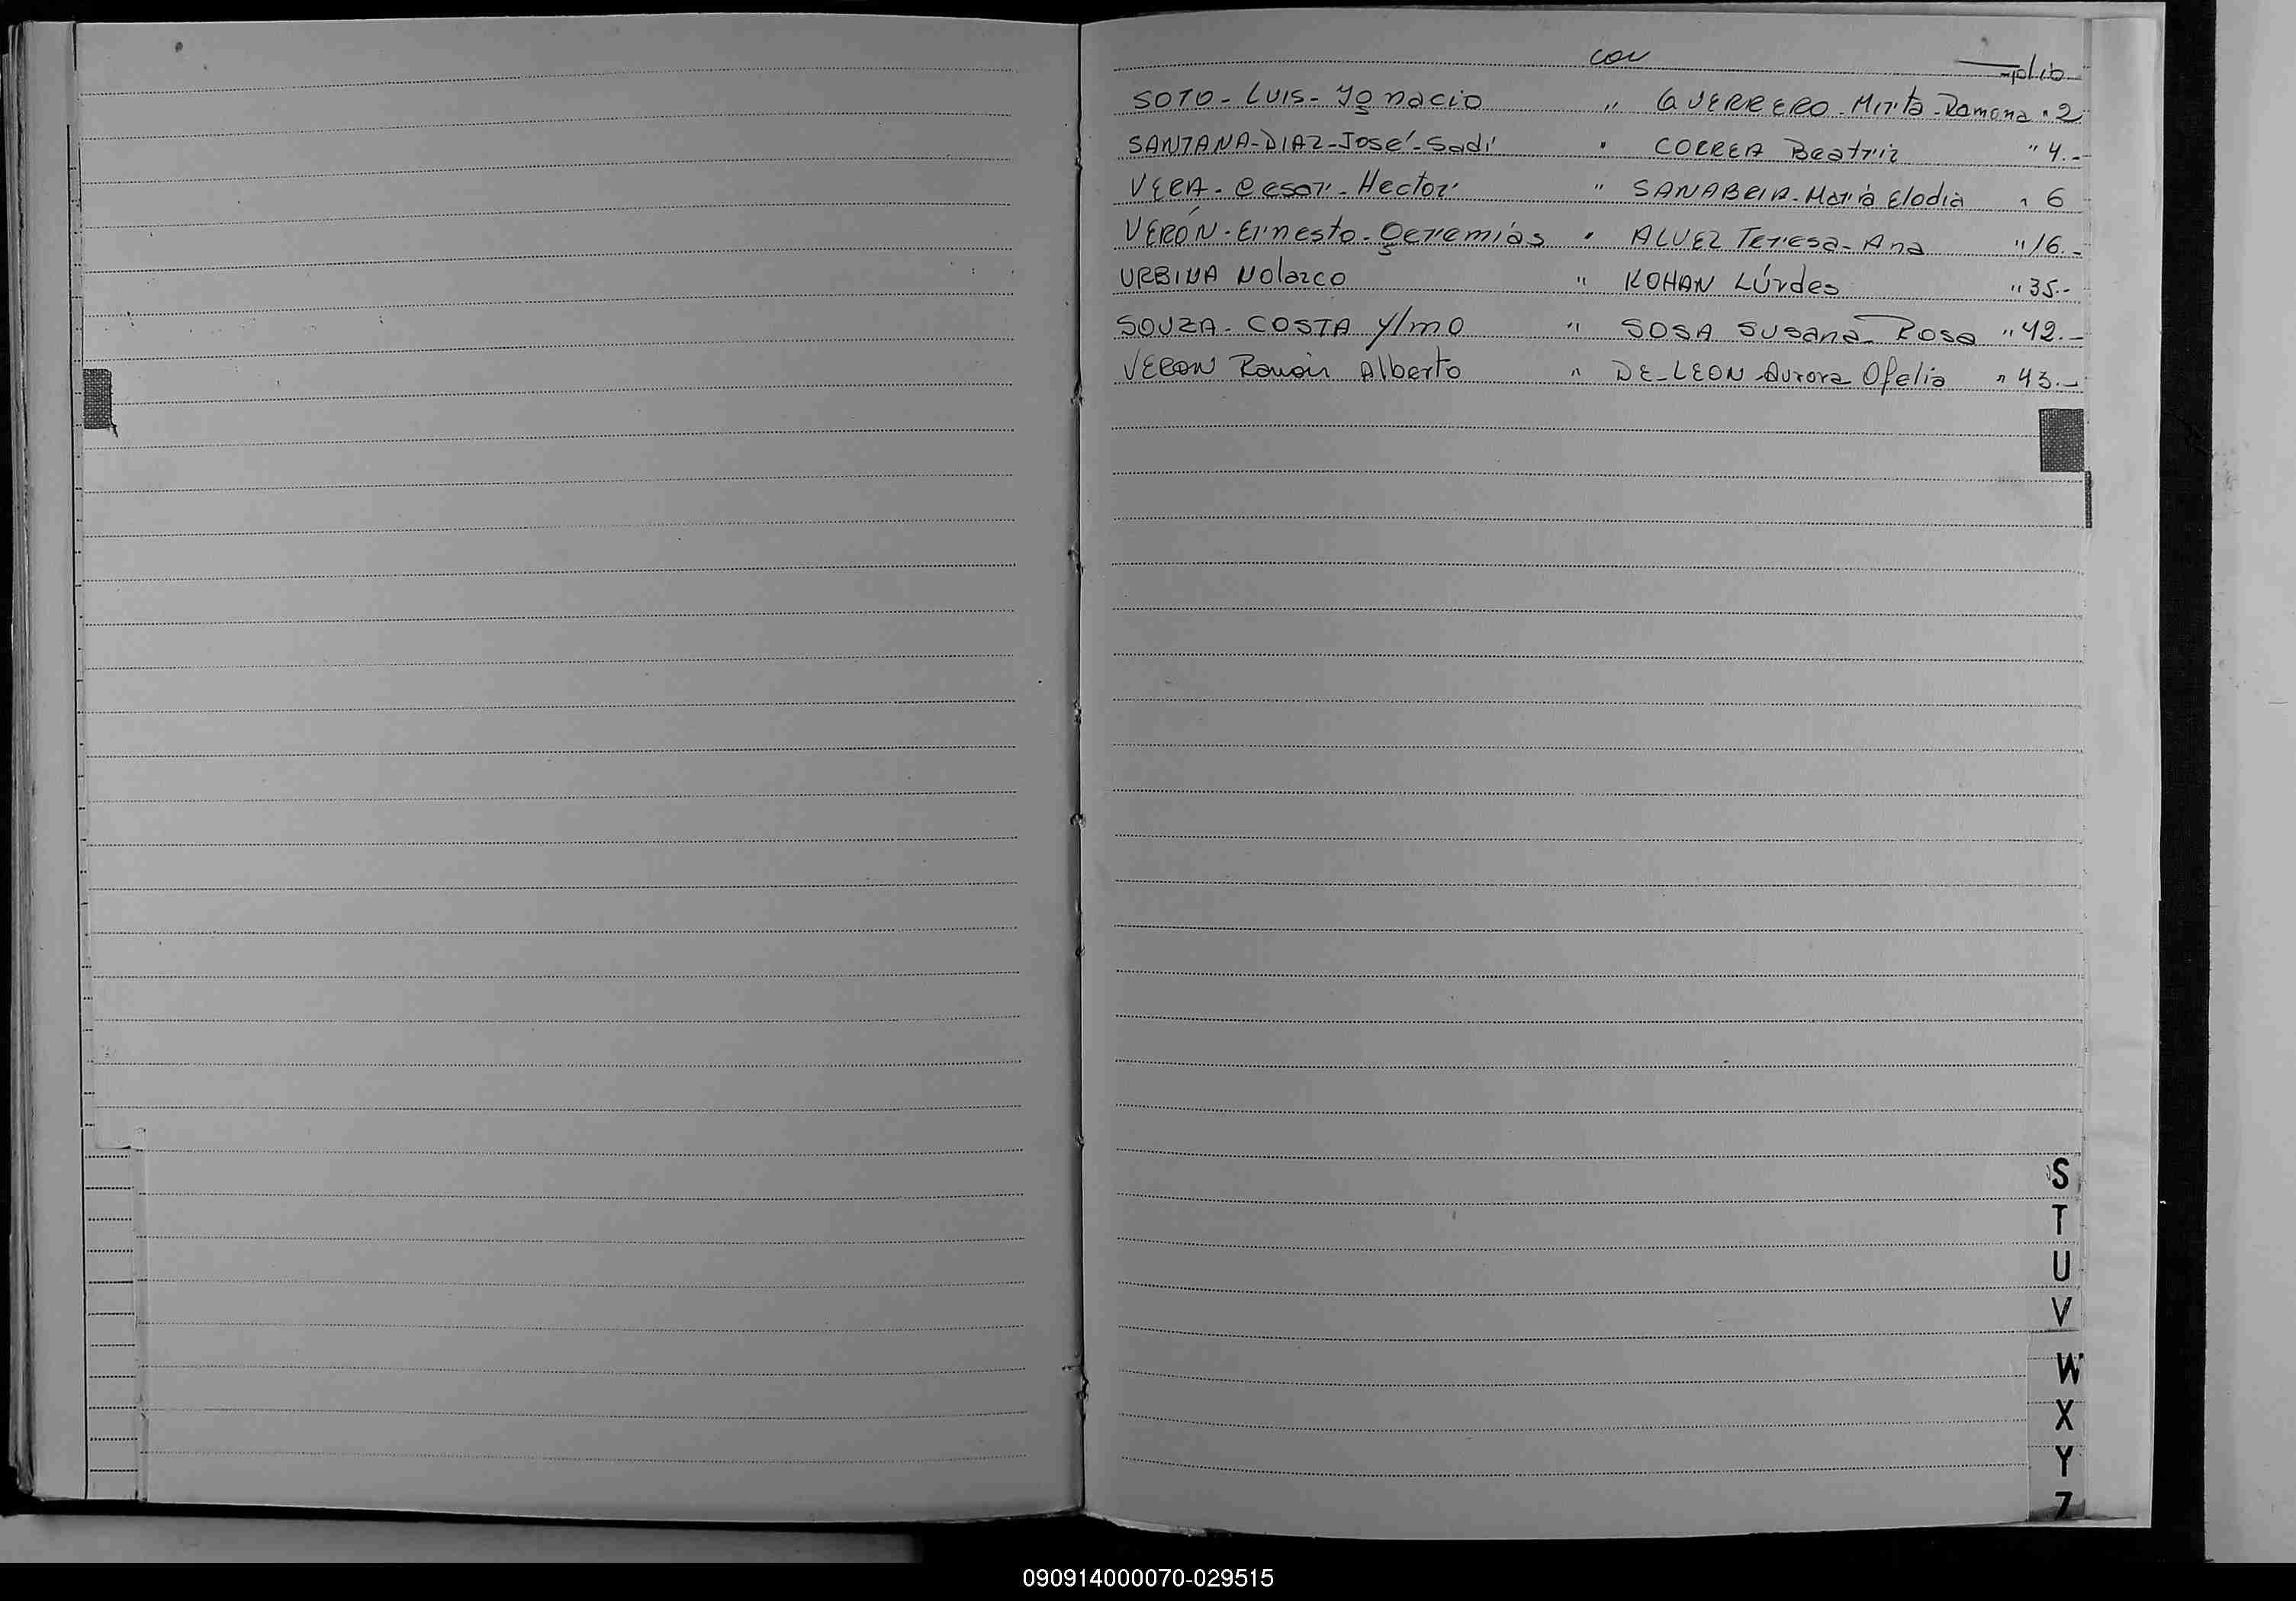 con
SOTO - LUIS - Ygnacio " GUERRERO - Mirta - Ramona " 2
SANTANA - DIAZ - José - Sadi " CORREA Beatriz " 4.-
VERA - Cesar - Hector " SANABRIA - María Elodia " 6
VERÓN - Ernesto - Geremiás " ALVEZ Teresa - Ana " 16.-
URBINA Nolazco " KOHAN Lúrdes " 35.-
SOUZA - COSTA Ylmo " SOSA Susana Rosa " 42.-
VERON Ramón Alberto " DE - LEON - Aurora Ofelia " 43.-
S
T
U
V
W
X
Y
Z
090914000070-029515